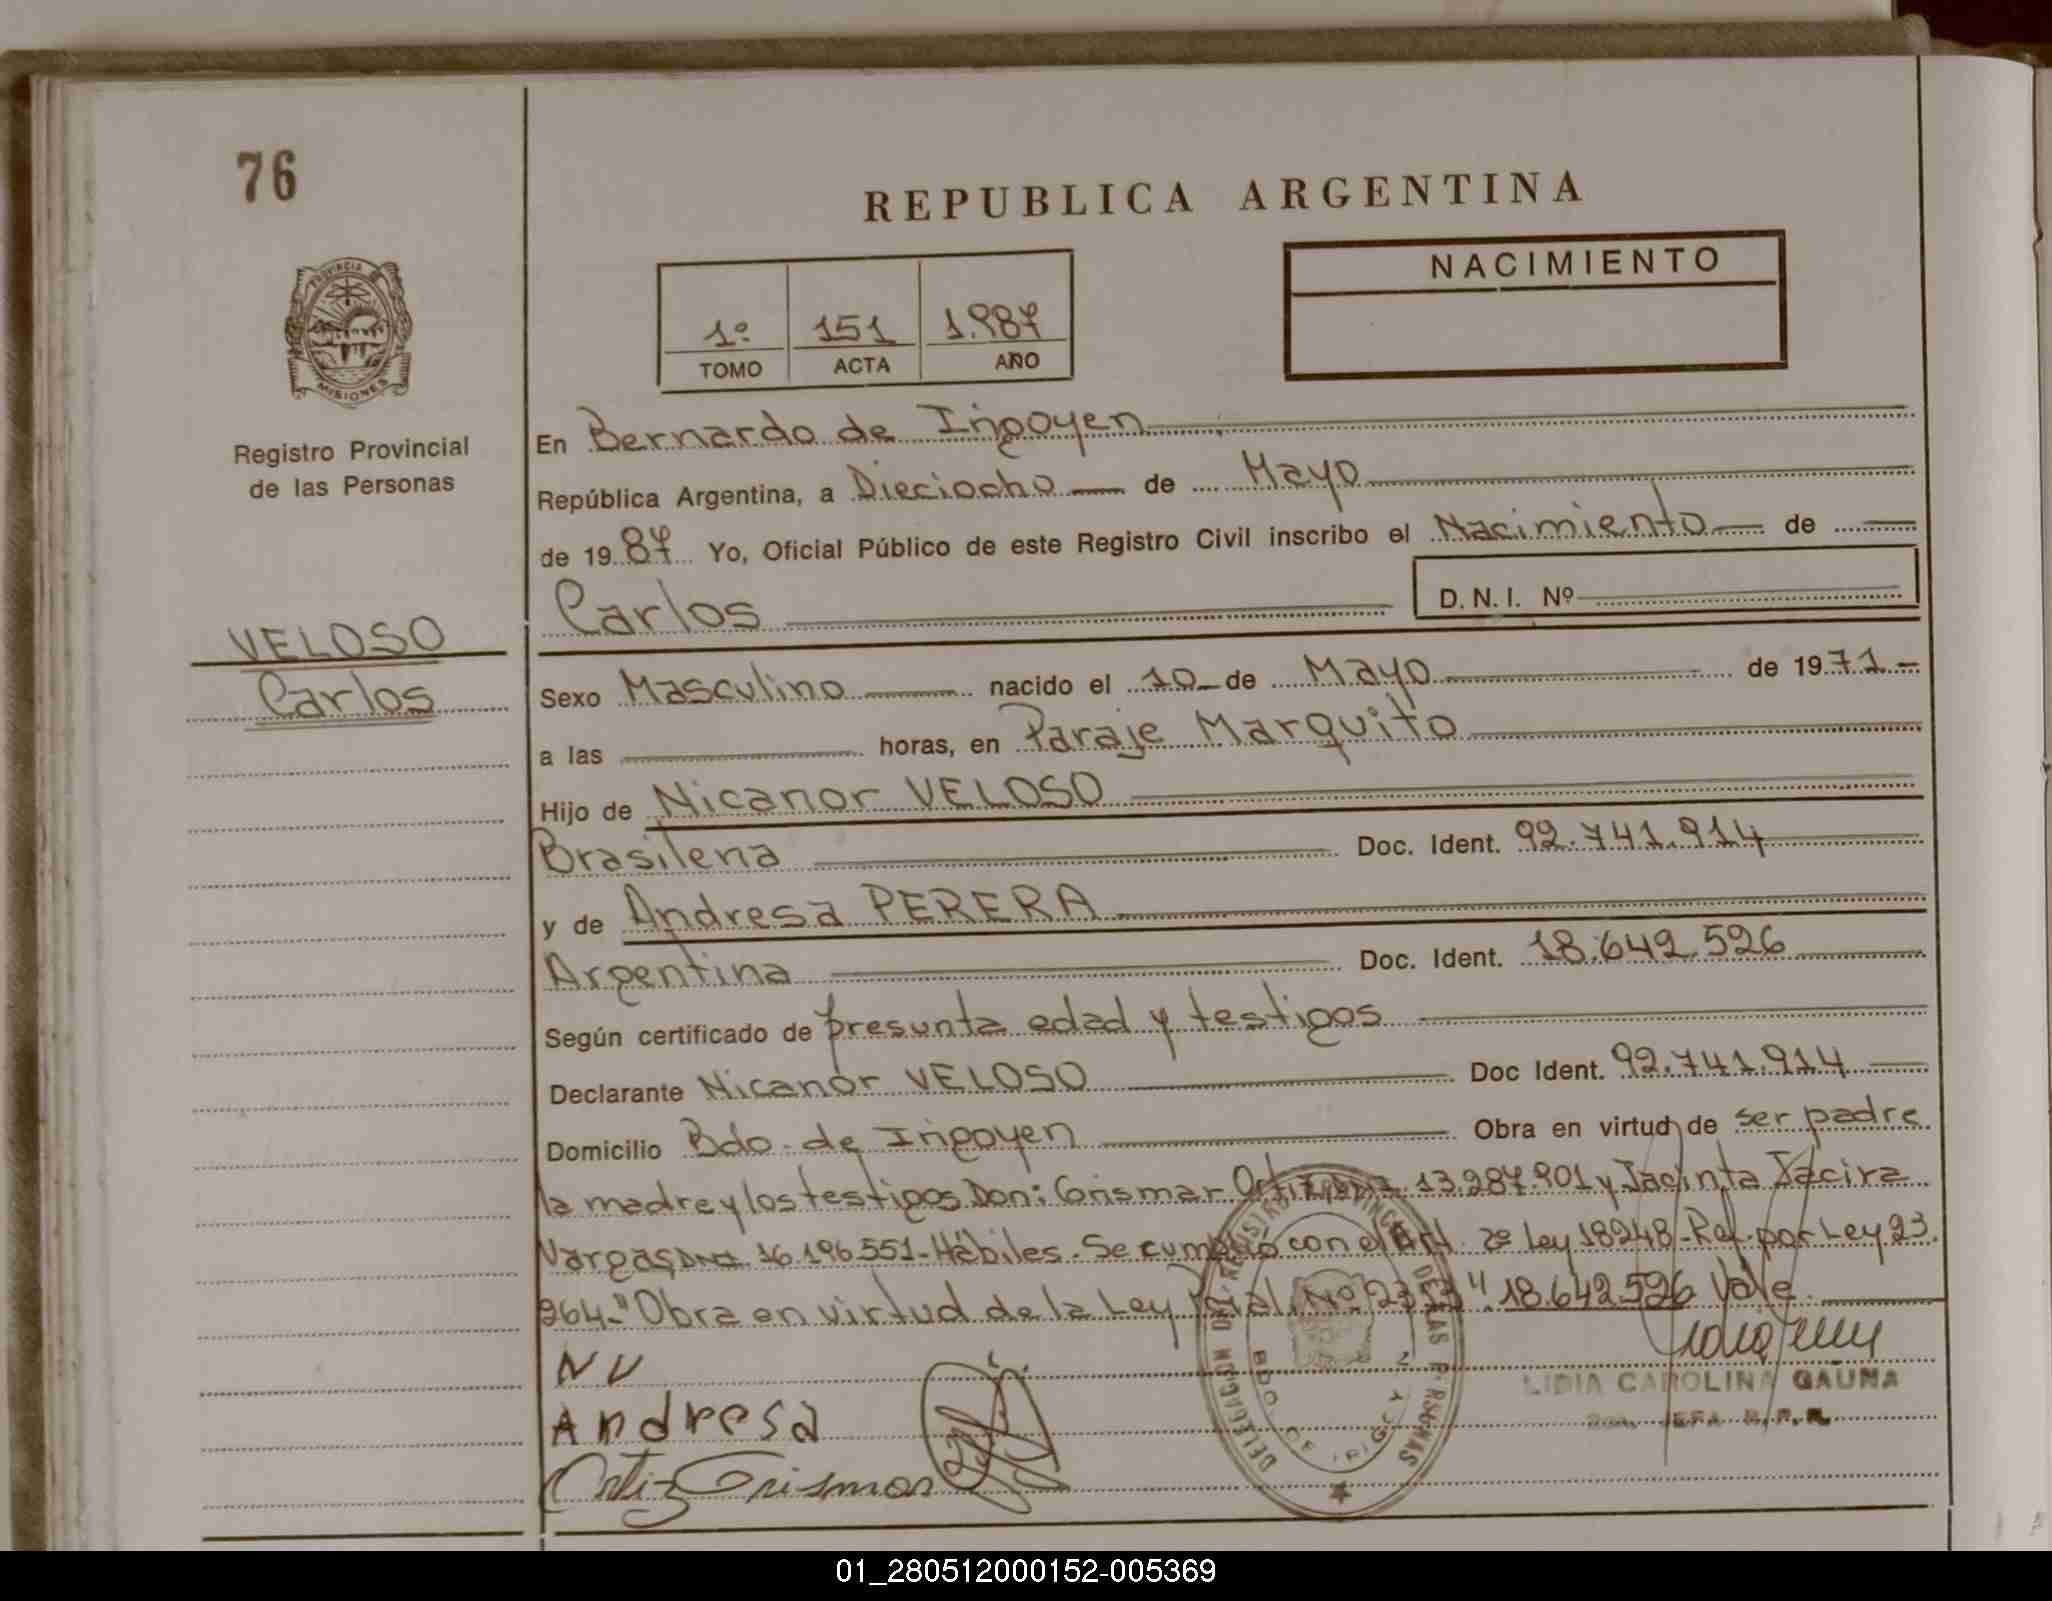 76
REPUBLICA ARGENTINA
PROVINCIA DE
MISIONES
Registro Provincial
de las Personas
1º 151 1.987
TOMO ACTA AÑO
NACIMIENTO
En Bernardo de Irigoyen
República Argentina, a Dieciocho de Mayo
de 19 87 Yo, Oficial Público de este Registro Civil inscribo el Nacimiento de
Carlos D.N.I. Nº
VELOSO
Carlos
Sexo Masculino nacido el 10 de Mayo de 19 71
a las horas, en Paraje Marquito
Hijo de Nicanor VELOSO
Brasilena Doc. Ident. 92.741.914
y de Andresa PERERA
Argentina Doc. Ident. 18.642.526
Según certificado de presunta edad y testigos
Declarante Nicanor VELOSO Doc Ident. 92.741.914
Domicilio Bdo. de Irigoyen Obra en virtud de ser padre
la madre y los testigos Don: Grismar Ortiz, 13.287.901 y Jacinta Jacira
Vargas, DNI. 16.196.551 - Hábiles. Se cumplió con el Art. 2º Ley 18248 - Ref. por Ley 23.
264.- "Obra en virtud de la Ley Pcial. Nº 2313". 18.642.526 Vale.
NV
Andresa
Ortiz Grismar
DELEGACION DEL REGISTRO PROVINCIAL DE LAS PERSONAS
BDO DE IRIGOYEN
LIDIA CAROLINA GAUNA
JEFA R.P.P.
01_280512000152-005369